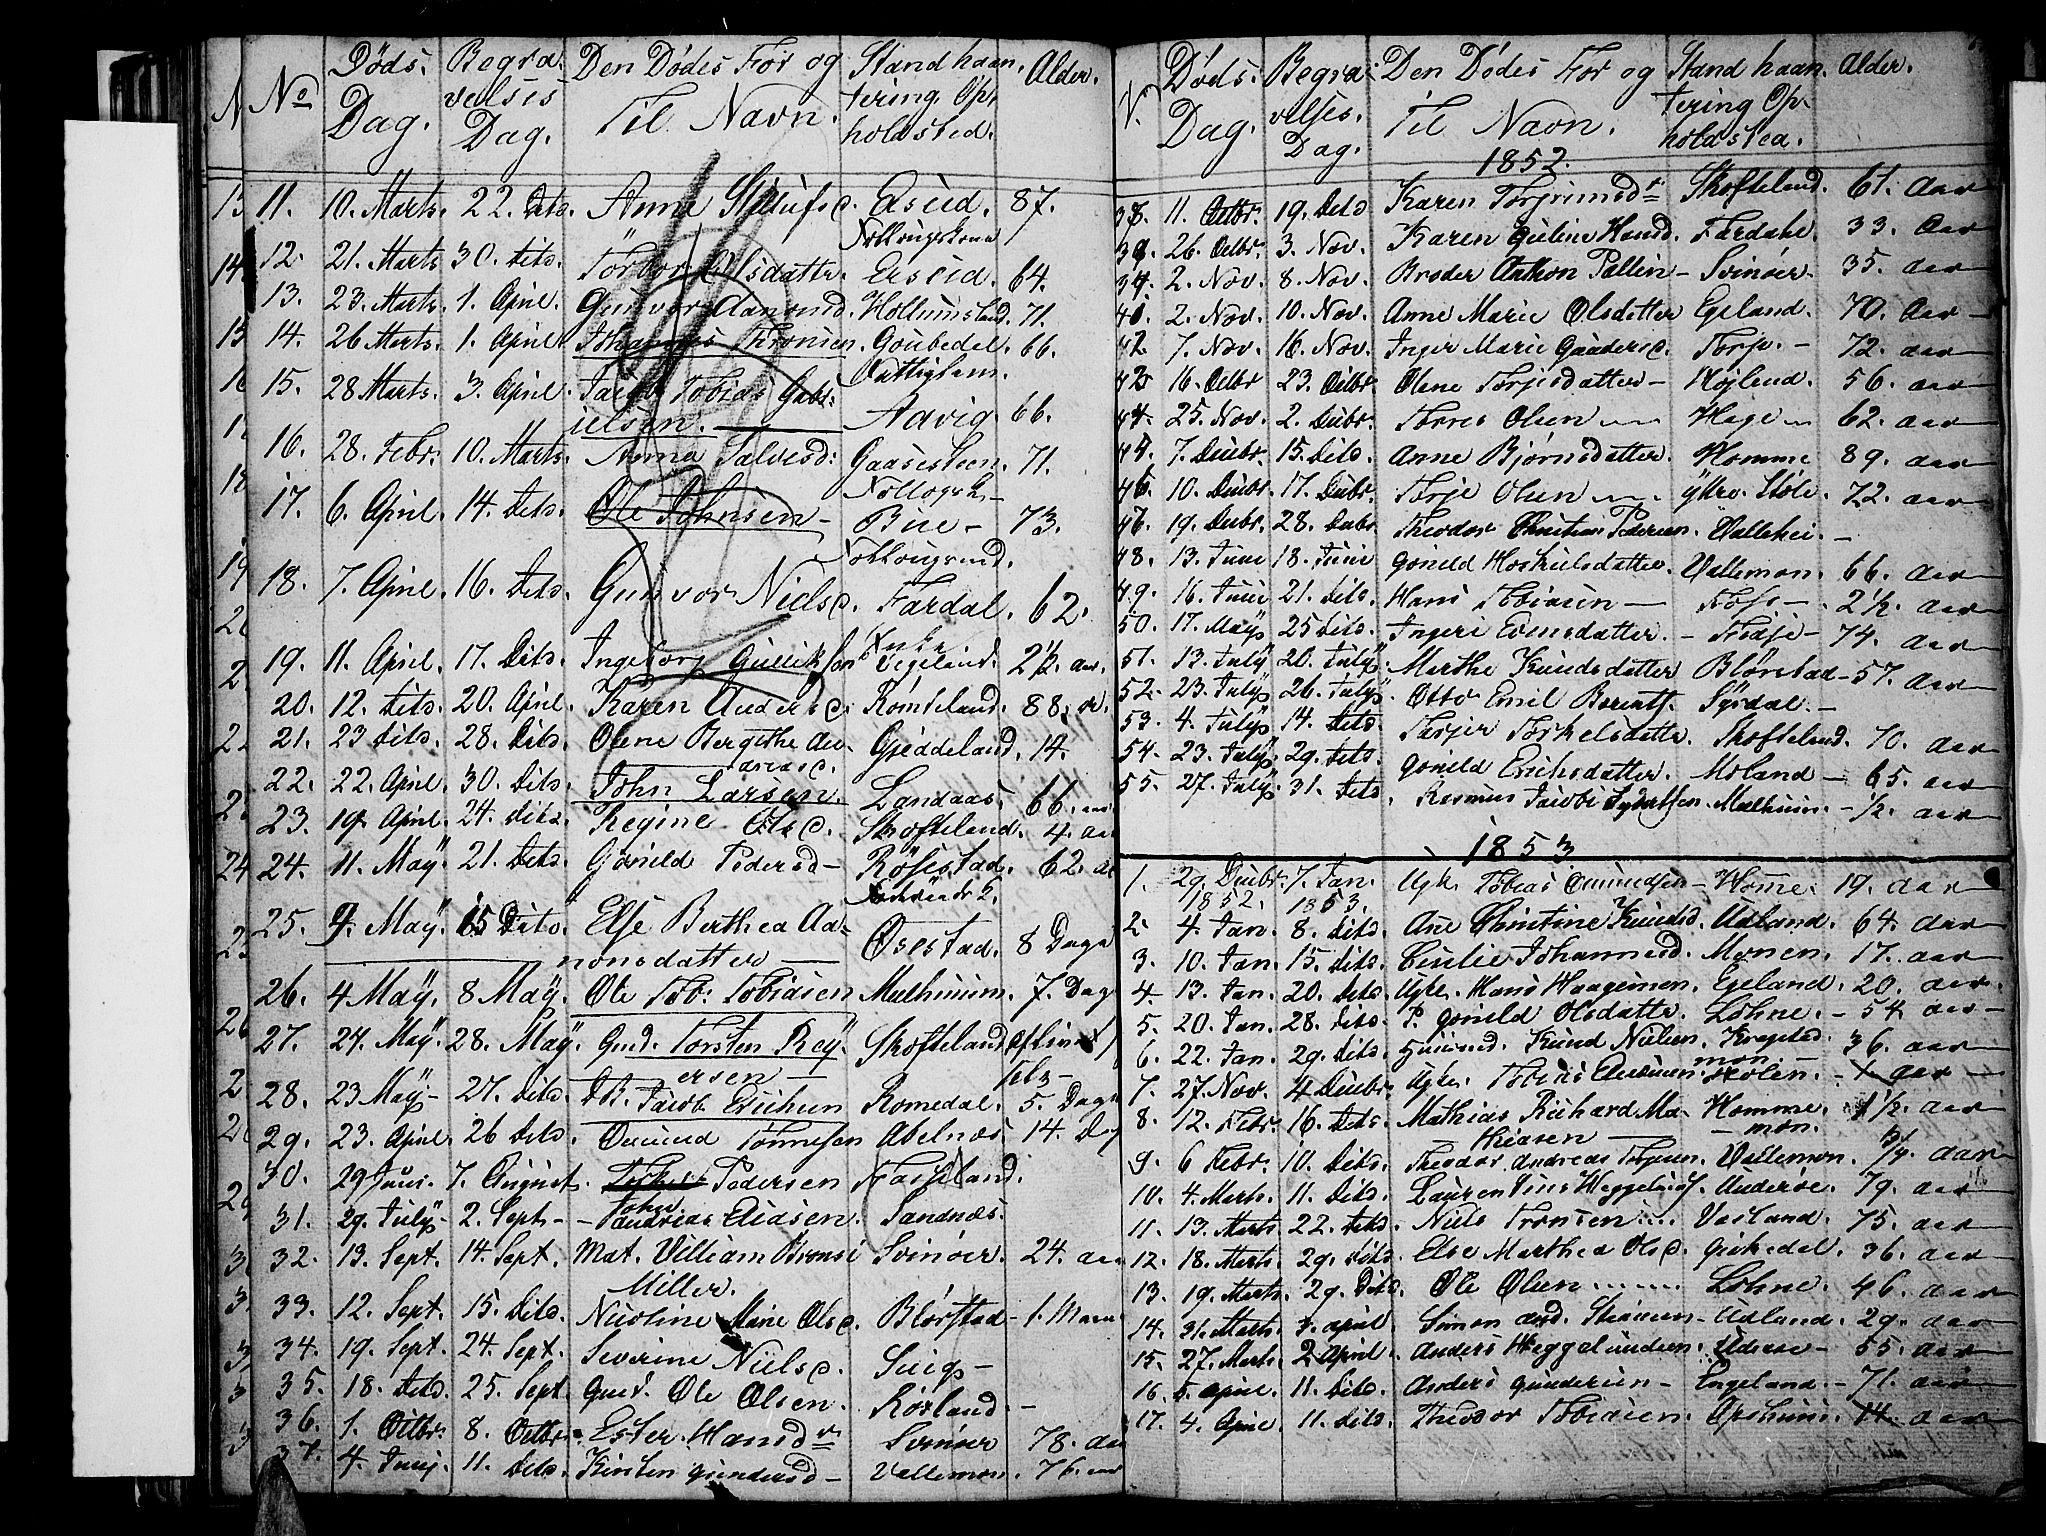 No Döds. Dag. Begra. velses Dag. Den Dödes For og Til Navn. Stand haan. tering. Op. holdsted. Alder.
11. 10. Marts. 22. Dito. Anne Eseid. 87.
12. 21. Marts 30. Dito. Olsdattr. Erseid. 64.
13. 23. Marts. 1. April. Gunvor Aanensd. Hollumsland. 71.
14. 26 Marts. 1. April Johannes Thronsen. Goubedal. 66.
15. 28 Marts. 3. April. Jacob Tobias Gabr:
ielsen. Aavig. 66.
16. 28. Febr: 10. Marts. Anna Salvesd: Gaasesteen. 71.
17. 6. April. 14. Dito. Ole Johnsen - Bue - 73.
18. 7. April. 16. Dito. Gunvor Nielsd. Fardal. 62.
19. 11. April. 17. Dito. Ingeborg Vegeland. 2½ aar.
20. 12. Dito. 20. April. Karen Andersd. Romseland. 88. ar.
21. 23 Dito. 28. Dito. Olene Bergithe An- Gjeddeland. 14.
dreasd.
22. 22. April. 30. Dito. John Larsen. Landaas. 66.
23. 19. April. 24. Dito. Regine Olsd. Skofteland. 4. aa
24. 11. May 21. Dito. Gonild Pedersd - Rösestad. 62. a
25. 9. May. 15 Dito. Else Berthea Aa-
nonsdatter Osestad. 8 Dage
26. 4 May. 8 May. Ole Tob: Tobiasen Malhuum. 7. Dag
27. 24. May. 28. May. Gud. Torsten Rey.
ersen Skofteland
28. 23 May - 27. Dito. D.B. Jacob Erichsen Romedal. 5. Dage
29. 23. April. 26 Dito. Omund Tönnesen Abelnæs. 14. D
30. 29 Juni. 7. August. Pedersen Fasseland.
31. 29. July - 2. Sept. - John
Andreas Aidsen. Sandnæs.
32. 13. Sept. 14. Sept. Mat. Villiam Svinöer. 24. aa
Miller.
33. 12. Sept. 15. Dito. Nicoline Marie Olsd. Blörstad - 1. Maa
34. 19. Sept. 24. Sept. Severine Nielsd.
35. 18. Dito. 25. Sept. Gud. Ole Olsen. Röxland -
36. 1. Octbr. 8. Octbr. - Ester Hansdr Svinöer 78. aa
37. 4. Juny. 11. Dito. Kirsten Gundersd - Vallemon. 76.
N. Döds. Dag. Begra: velses. Dag. Den Dödes For og Til Navn. Stand haan. tering Op. holdsted. Alder.
1852.
38. 11. Octbr. 19. Dito Karen Torjermsdr Skofteland. 61. aar
39. 26. Octbr. 3. Nov. Karen Guline Hansd. Fardahl. 33. aar
2. Nov. 8. Nov. Broder Anthon Pallin - Svinöer. 35. aar
41. 2. Nov. 10. Nov. Anne Marie Olsdatter Egeland. 70. aar
42 7. Nov. 16. Nov. Inger Marie Gundersd. Torp. - 72. aar
16. Octbr 23. Octbr. Olene Torjusdatter - Höjland. 56. aar
44. 25. Nov. 2. Decbr. Torres Olsen Hage 62. aar
7. Decbr. 15. Dito. Anne Björnsdatter. Homme 89. aar
10. Decbr. 17. Decbr. Terje Olsen Ytre. Støle. 72. aar
19. Decbr. 28. Decbr Theodor Christian Pedersen. Vallehei. -
48. 13. Juni 18. Juni Gonild Hoskuldsdatter. Vallemon. 66. aar
49. 16. Juni 21. Dito. Hans Tobiasen - Foss - 2½. aar
50. 17. May 25 Dito. Ingeri Evensdatter. - Tredje - 74. aar
51. 13. July 20. July Marthe Knudsdatter Blörstad - 57. aar
52. 23. July 26. July. Otto Emil Berenth. Syrdal. -
53. 4. July 14. Dito. Terjer Torkelsdatter. Skofteland. 70. aar
54. 23. July. 29. Dito. Gonild Erichsdatter. Moland - 65. aar
55. 27. July. 31. Dito. Rasmus Jacob Malhuum. - ½. aar
1853
1. 29. Decbr. 7. Jan. Ugk. Tobias Omundsen - Home. 19. aar
1852. 1853.
2. 4. Jan. 8. Dito. Ane Christine Knudsd. Udland. 64. aar
3. 10. Jan. 15. Dito. Cecilie Johannesd. Monen. 17. aar
4. 13. Jan. 20. Dito. Ugk. Hans Haagensen. Egeland. 20. aar.
5. 20. Jan. 28. Dito. P. Gonild Olsdatter. Löhne. - 54. aar -
6. 22. Jan. 29. Dito. Knud Nielsen. 36. aar
mon. -
7. 27. Nov. 4 Decbr. Ugk. Tobias - 1 aar
8. 12. Febr. 16. Dito. Mathias Richard Ma- Homme. 1½. aar
thiasen mon.
9. 6 Febr. 10. Dito. Theodor Andreas Vallemon. ¾. aar
10. 4. Marts. 11. Dito. Laurentius Heggelund. Underöe. 79. aar
11. 13. Marts. 22. Dito. Niels Tronsen Vasland. 75. aar
12. 18. Marts. 29. Dito. Else Marthea Olsd. Gjekedal. 36. aar
13. 19. Marts. 29. Dito. Ole Olsen Löhne. 46. aar
14. 31. Marts. april. Simon and. Udland. 29. aar
15. 27. Marts. 2 April. Anders Heggelundsen. Uderöe - 55. aar
16. 5. April. 11. Dito. Anders Gundersen - Engeland. - 71. aar
17. 4. April. 11. Dito. Theodor Tobiasen. 14. aar